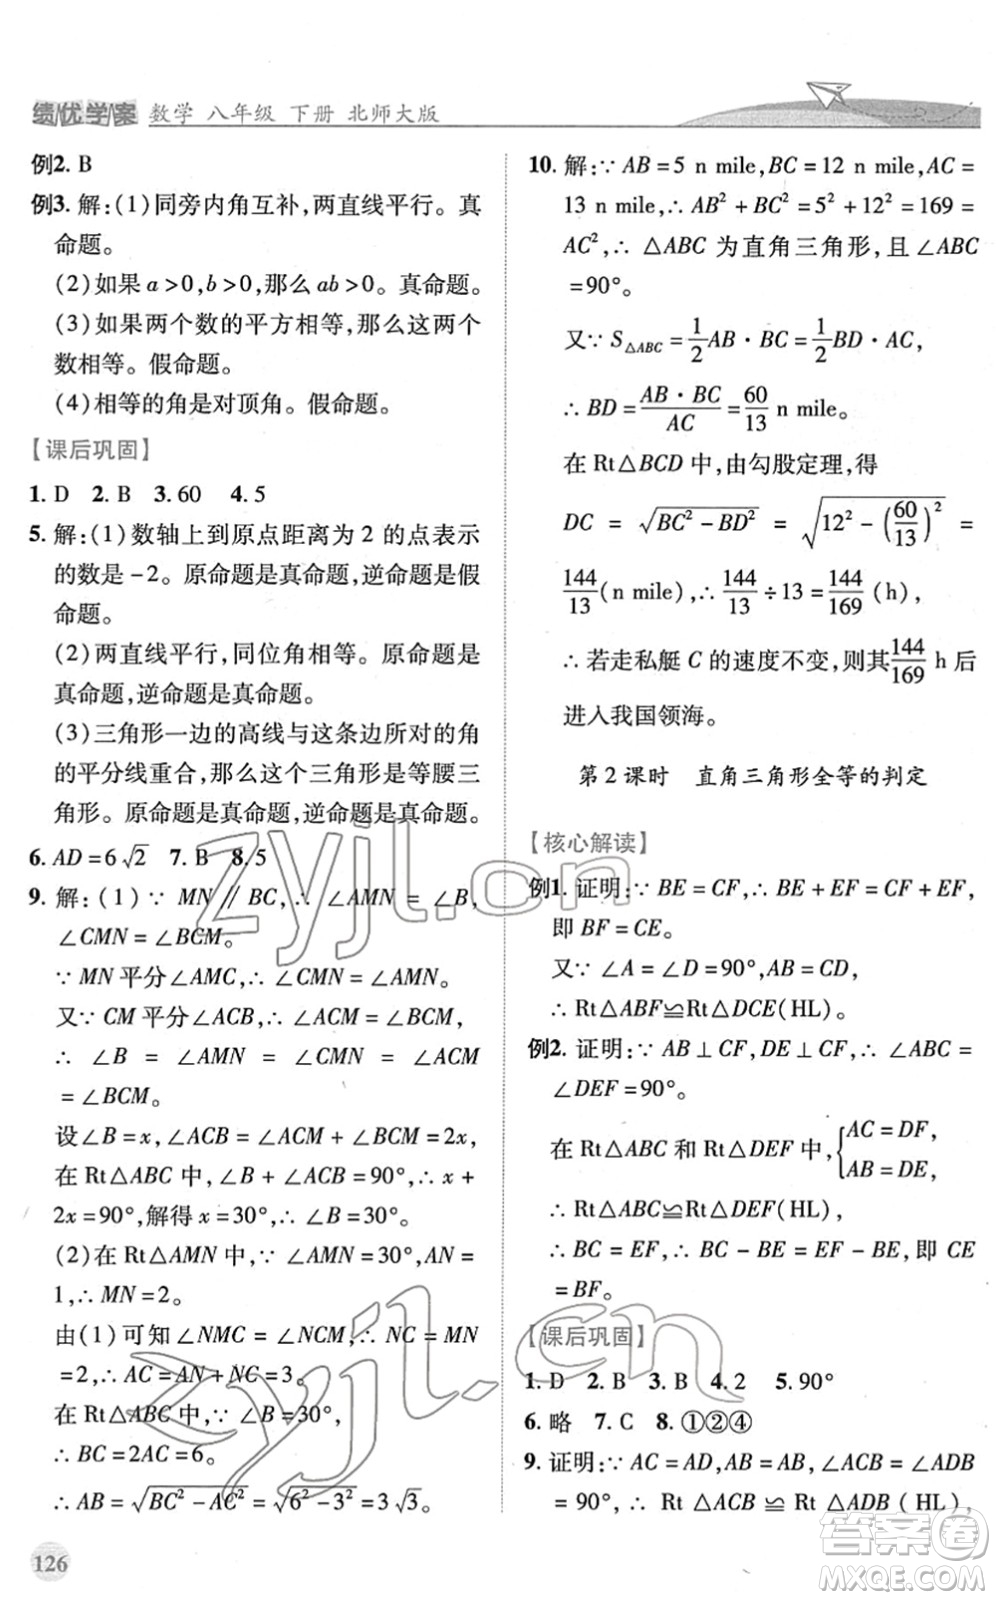 绩优学案 数学 八年级 下册 北师大版
例2. B
例3. 解:(1)同旁内角互补,两直线平行。真
命题。
(2)如果 a>0,b>0,那么 ab>0。真命题。
(3)如果两个数的平方相等,那么这两个
数相等。假命题。
(4)相等的角是对顶角。假命题。
【课后巩固】
1. D 2. B 3. 60 4. 5
5. 解:(1)数轴上到原点距离为 2 的点表示
的数是-2。原命题是真命题,逆命题是假
命题。
(2)两直线平行,同位角相等。原命题是
真命题,逆命题是真命题。
(3)三角形一边的高线与这条边所对的角
的平分线重合,那么这个三角形是等腰三
角形。原命题是真命题,逆命题是真命题。
6. AD=6√2 7. B 8. 5
9. 解:(1)∵ MN∥BC,∴ ∠AMN = ∠B,
∠CMN=∠BCM。
∵ MN 平分∠AMC,∴ ∠CMN=∠AMN。
又∵ CM 平分∠ACB,∴ ∠ACM=∠BCM,
∴ ∠B = ∠AMN = ∠CMN = ∠ACM
=∠BCM。
设∠B=x,∠ACB=∠ACM+∠BCM=2x,
在 Rt△ABC 中,∠B+∠ACB=90°,∴ x+
2x=90°,解得 x=30°,∴ ∠B=30°。
(2)在 Rt△AMN 中,∵ ∠AMN=30°,AN=
1,∴ MN=2。
由(1)可知∠NMC=∠NCM,∴ NC=MN
=2,∴ AC=AN+NC=3。
在 Rt△ABC 中,∵ ∠B=30°,
∴ BC=2AC=6。
∴ AB=√(BC²-AC²)=√(6²-3²)=3√3。
126
10. 解:∵ AB=5 n mile,BC=12 n mile,AC=
13 n mile,∴ AB²+BC²=5²+12²=169=
AC²,∴ △ABC 为直角三角形,且∠ABC
=90°。
又∵ S△ABC=1/2 AB·BC=1/2 BD·AC,
∴ BD=(AB·BC)/AC=60/13 n mile。
在 Rt△BCD 中,由勾股定理,得
DC = √(BC²-BD²) = √(12²-(60/13)²) =
144/13(n mile),∴ 144/13÷13=144/169(h),
∴ 若走私艇 C 的速度不变,则其144/169 h 后
进入我国领海。
第 2 课时 直角三角形全等的判定
【核心解读】
例1. 证明:∵ BE=CF,∴ BE+EF=CF+EF,
即 BF=CE。
又∵ ∠A=∠D=90°,AB=CD,
∴ Rt△ABF≌Rt△DCE(HL)。
例2. 证明:∵ AB⊥CF,DE⊥CF,∴ ∠ABC=
∠DEF=90°。
在 Rt△ABC 和 Rt△DEF 中,{AC=DF, AB=DE,
∴ Rt△ABC≌Rt△DEF(HL),
∴ BC=EF,∴ BC-BE=EF-BE,即 CE
=BF。
【课后巩固】
1. D 2. B 3. B 4. 2 5. 90°
6. 略 7. C 8. ①②④
9. 证明:∵ AC=AD,AB=AB,∠ACB=∠ADB
=90°,∴ Rt△ACB≌Rt△ADB(HL),
zyjl.cn
zyjl.cn
答案圈
MXQE.COM